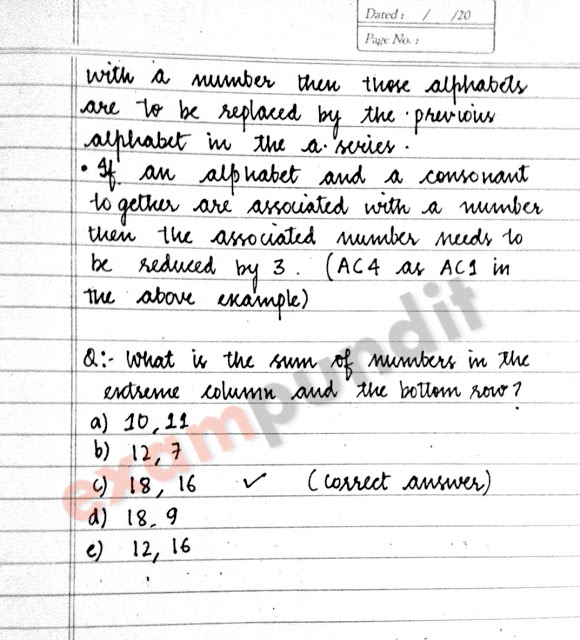 Dated: / /20
Page No.:
with a number then those alphabets
are to be replaced by the previous
alphabet in the a. series.
• If an alphabet and a consonant
together are associated with a number
then the associated number needs to
be reduced by 3. (AC4 as AC1 in
the above example)
Q:- What is the sum of numbers in the
extreme column and the bottom row?
a) 10, 11
b) 12, 7
c) 18, 16 ✓ (correct answer)
d) 18, 9
e) 12, 16
exampundit